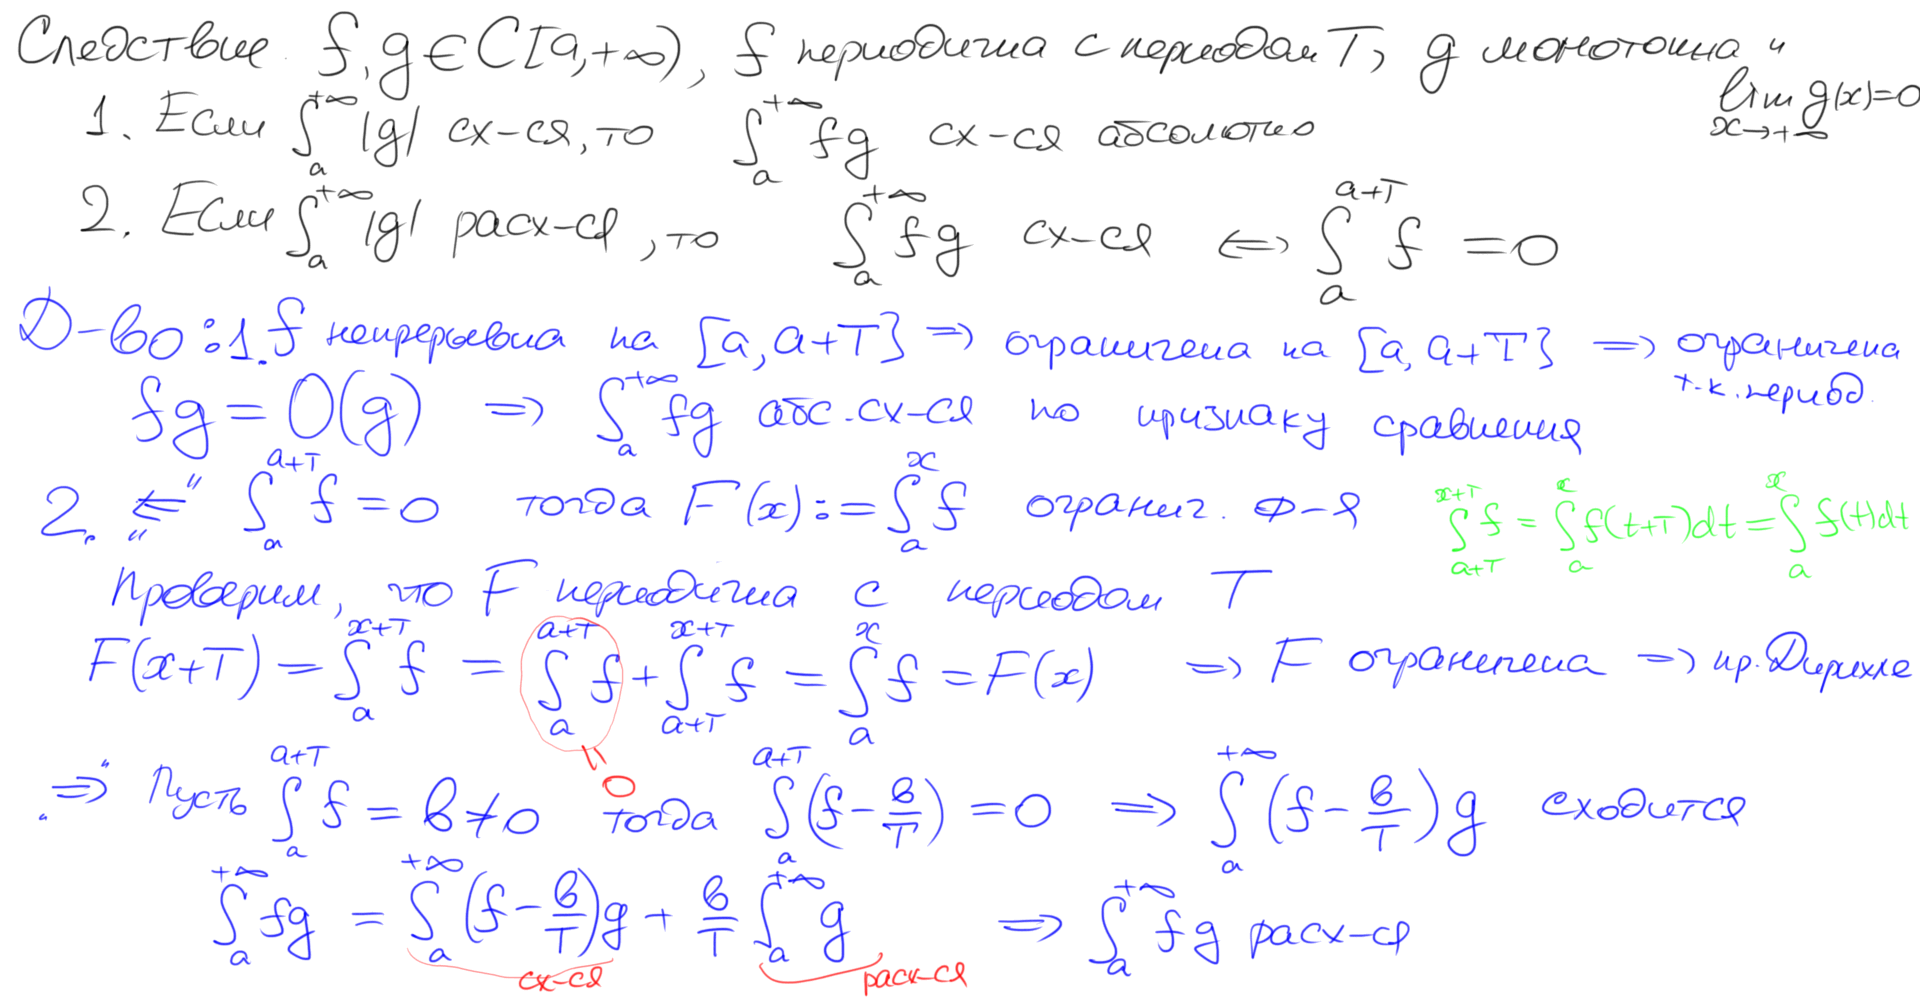 Следствие. f, g ∈ C[a,+∞), f периодична с периодом T, g монотонна и lim_{x→+∞} g(x)=0
1. Если ∫_a^{+∞} |g| сх-ся, то ∫_a^{+∞} fg сх-ся абсолютно
2. Если ∫_a^{+∞} |g| расх-ся, то ∫_a^{+∞} fg сх-ся ⟺ ∫_a^{a+T} f = 0
Д-во: 1. f непрерывна на [a, a+T] ⇒ ограничена на [a, a+T] ⇒ ограничена т.к. период.
fg = O(g) ⇒ ∫_a^{+∞} fg абс. сх-ся по признаку сравнения
2. „⇐" ∫_a^{a+T} f = 0 тогда F(x) := ∫_a^x f огранич. ф-я
∫_{a+T}^{x+T} f = ∫_a^x f(t+T)dt = ∫_a^x f(t)dt
Проверим, что F периодична с периодом T
F(x+T) = ∫_a^{x+T} f = ∫_a^{a+T} f + ∫_{a+T}^{x+T} f = ∫_a^x f = F(x) ⇒ F ограничена ⇒ пр. Дирихле
= 0
„⇒" Пусть ∫_a^{a+T} f = b ≠ 0 тогда ∫_a^{a+T} (f - b/T) = 0 ⇒ ∫_a^{+∞} (f - b/T) g сходится
∫_a^{+∞} fg = ∫_a^{+∞} (f - b/T) g + b/T ∫_a^{+∞} g ⇒ ∫_a^{+∞} fg расх-ся
сх-ся расх-ся